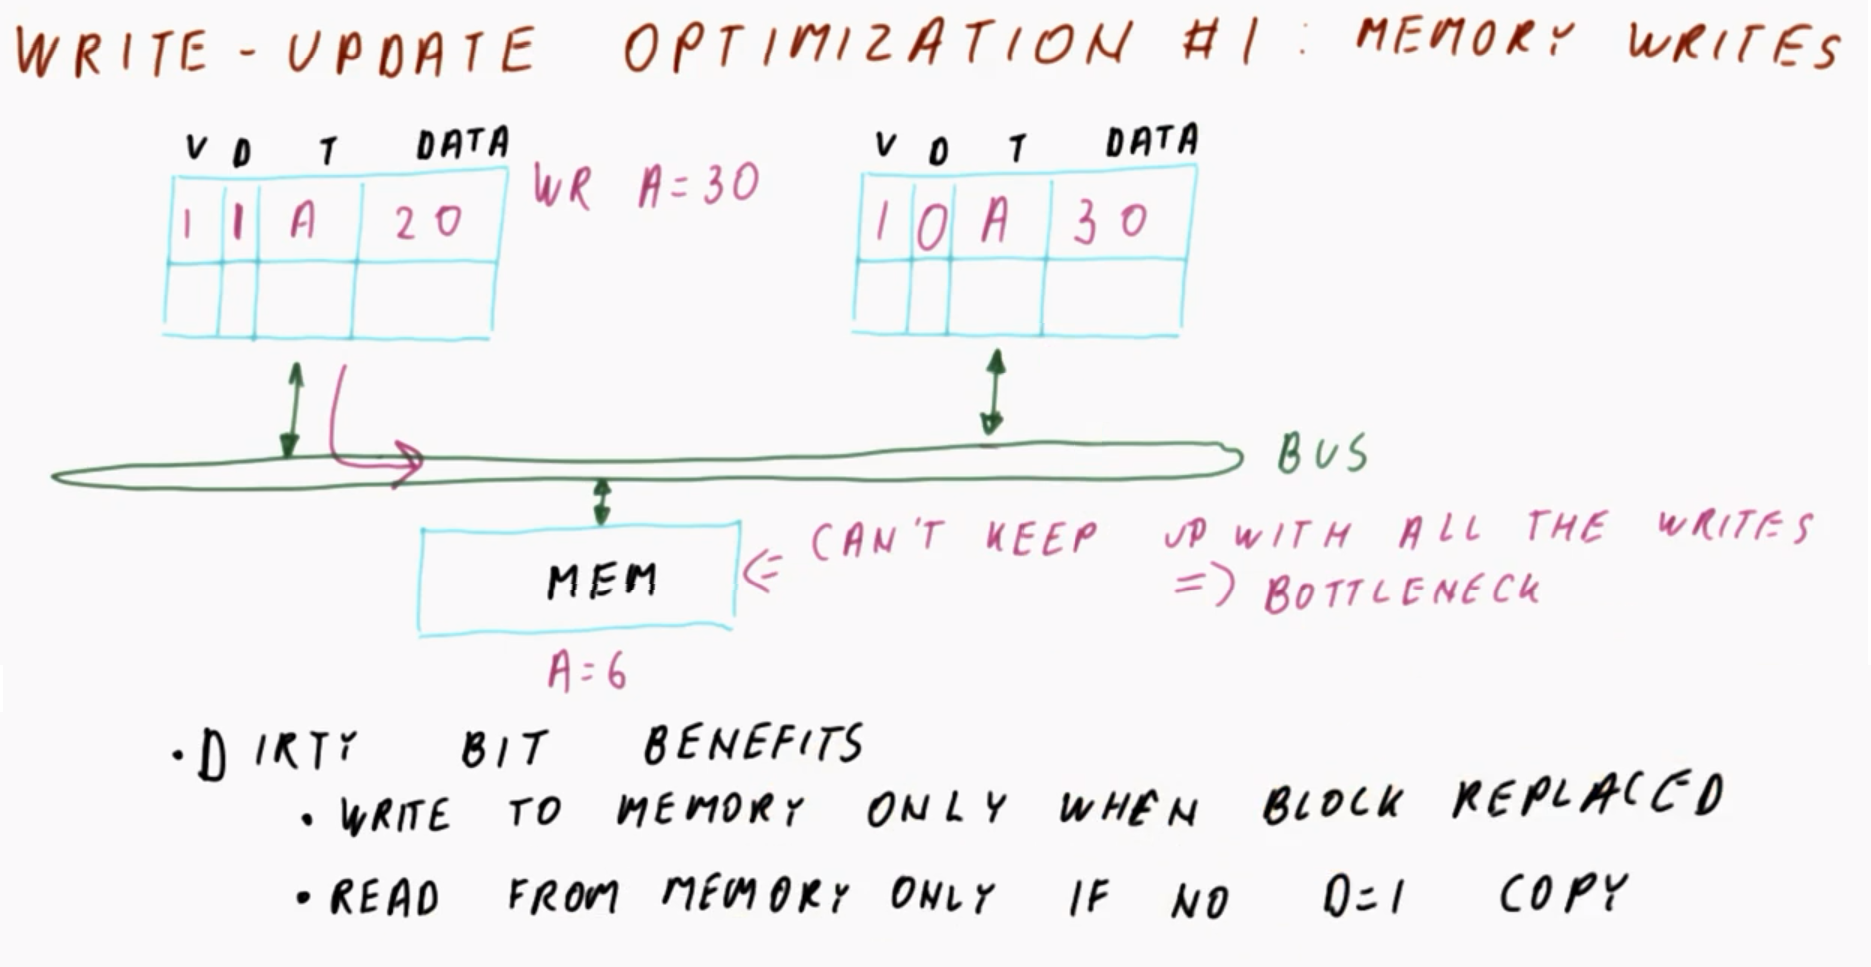 WRITE-UPDATE OPTIMIZATION #1: MEMORY WRITES
V D T DATA
1 1 A 20
WR A=30
V D T DATA
1 0 A 30
BUS
MEM
A=6
<= CAN'T KEEP UP WITH ALL THE WRITES
=> BOTTLENECK
• DIRTY BIT BENEFITS
• WRITE TO MEMORY ONLY WHEN BLOCK REPLACED
• READ FROM MEMORY ONLY IF NO D=1 COPY